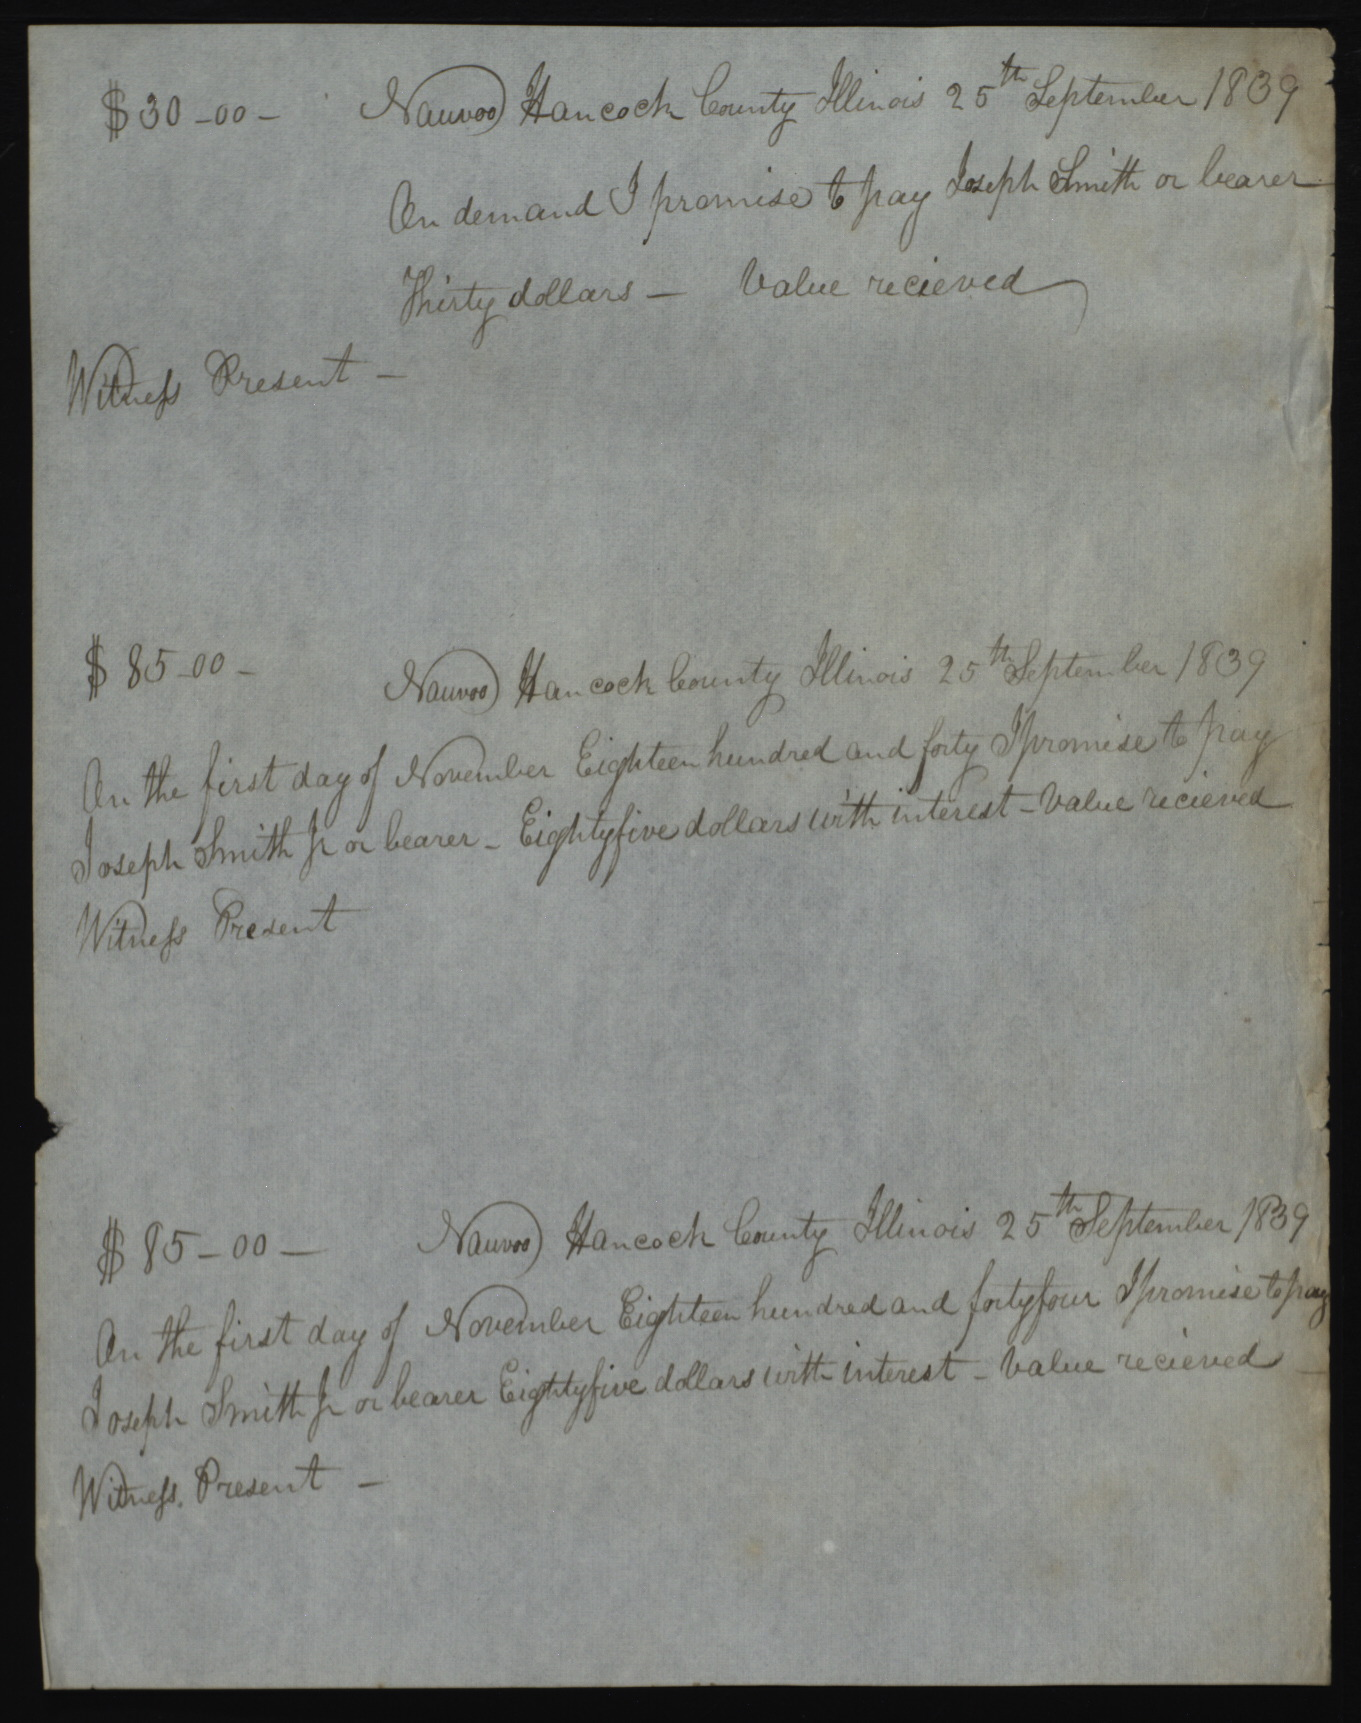 $30-00- Nauvoo Hancock County Illinois 25th September 1839
On demand I promise to pay Joseph Smith or bearer
Thirty dollars — Value recieved
Witness Present —
$85-00- Nauvoo Hancock County Illinois 25th September 1839
On the first day of November Eighteen hundred and forty I promise to pay
Joseph Smith Jr or bearer - Eightyfive dollars with interest - Value recieved
Witness Present
$85-00— Nauvoo Hancock County Illinois 25th September 1839
On the first day of November Eighteen hundred and fortyfour I promise to pay
Joseph Smith Jr or bearer Eightyfive dollars with interest - Value recieved —
Witness. Present —